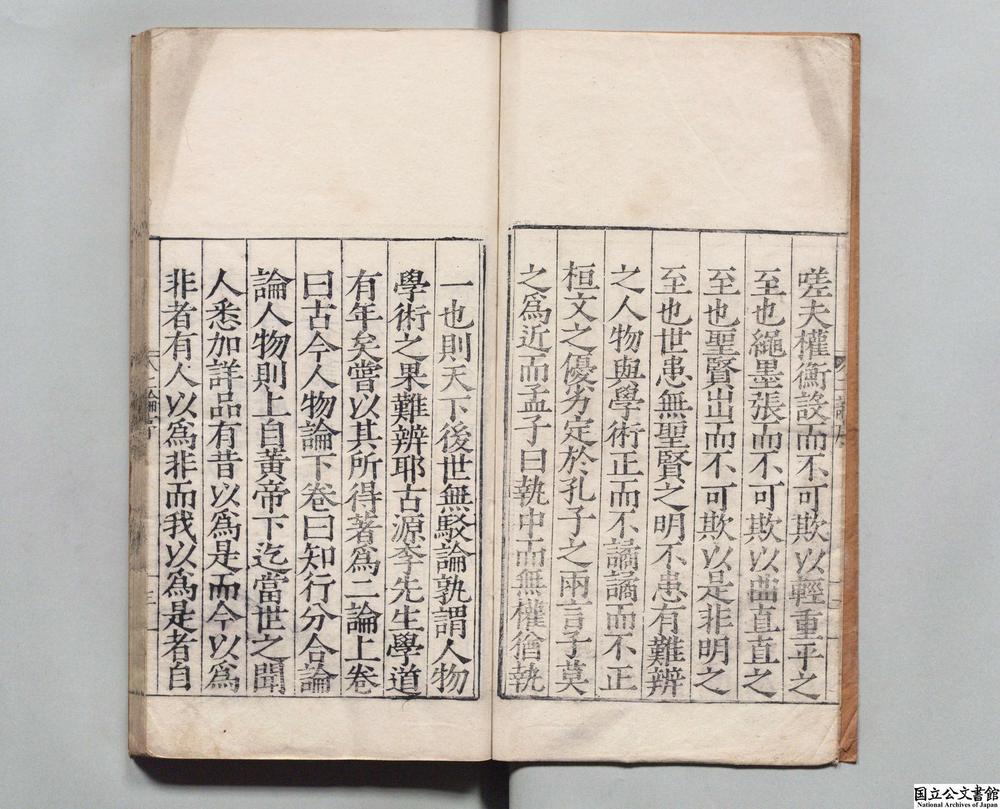 嗟夫權衡設而不可欺以輕重平之
至也繩墨張而不可欺以曲直直之
至也聖賢出而不可欺以是非明之
至也世患無聖賢之明不患有難辨
之人物與學術正而不譎譎而不正
桓文之優劣定於孔子之兩言子莫
之為近而孟子曰執中而無權猶執
一也則天下後世無駁論孰謂人物
學術之果難辨耶古源李先生學道
有年矣嘗以其所得著為二論上卷
曰古今人物論下卷曰知行分合論
論人物則上自黃帝下迄當世之聞
人悉加詳品有昔以為是而今以為
非者有人以為非而我以為是者自
国立公文書館
National Archives of Japan